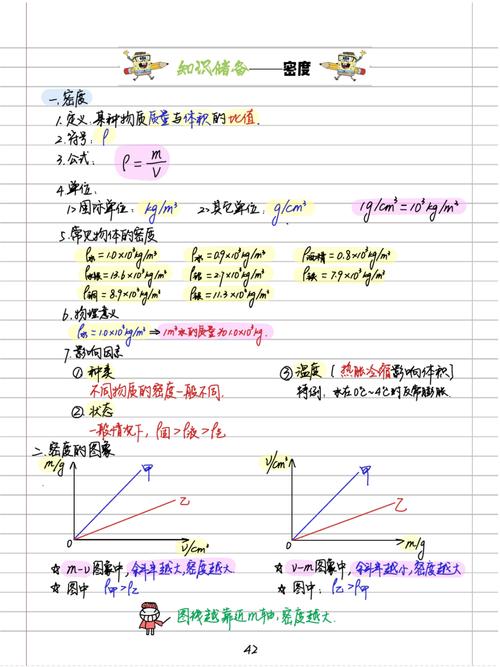 知识储备——密度
一、密度
1.定义:某种物质质量与体积的比值.
2.符号:ρ
3.公式: ρ=m/V
4.单位:
1>国际单位:kg/m³ 2>其它单位:g/cm³ 1g/cm³=10³kg/m³
5.常见物体的密度
ρ水=1.0×10³kg/m³ ρ冰=0.9×10³kg/m³ ρ酒精=0.8×10³kg/m³
ρ水银=13.6×10³kg/m³ ρ铝=2.7×10³kg/m³ ρ铁=7.9×10³kg/m³
ρ铜=8.9×10³kg/m³ =11.3×10³kg/m³
6.物理意义
ρ水=1.0×10³kg/m³⇒1m³水的质量为1.0×10³kg.
7.影响因素
① 种类 ③ 温度 [热胀冷缩影响体积]
不同物质的密度一般不同. 特例,水在0℃~4℃时反常膨胀
② 状态
一般情况下,ρ固>ρ液>ρ气
二、密度的图象
m/g 甲 乙 0 V/cm³
V/cm³ 甲 乙 0 m/g
☆ m-V图象中,斜率越大,密度越大 ☆ V-m图象中,斜率越小,密度越大
☆ 图中 ρ甲>ρ乙 ☆ 图中:ρ乙>ρ甲
图线越靠近m轴,密度越大.
42